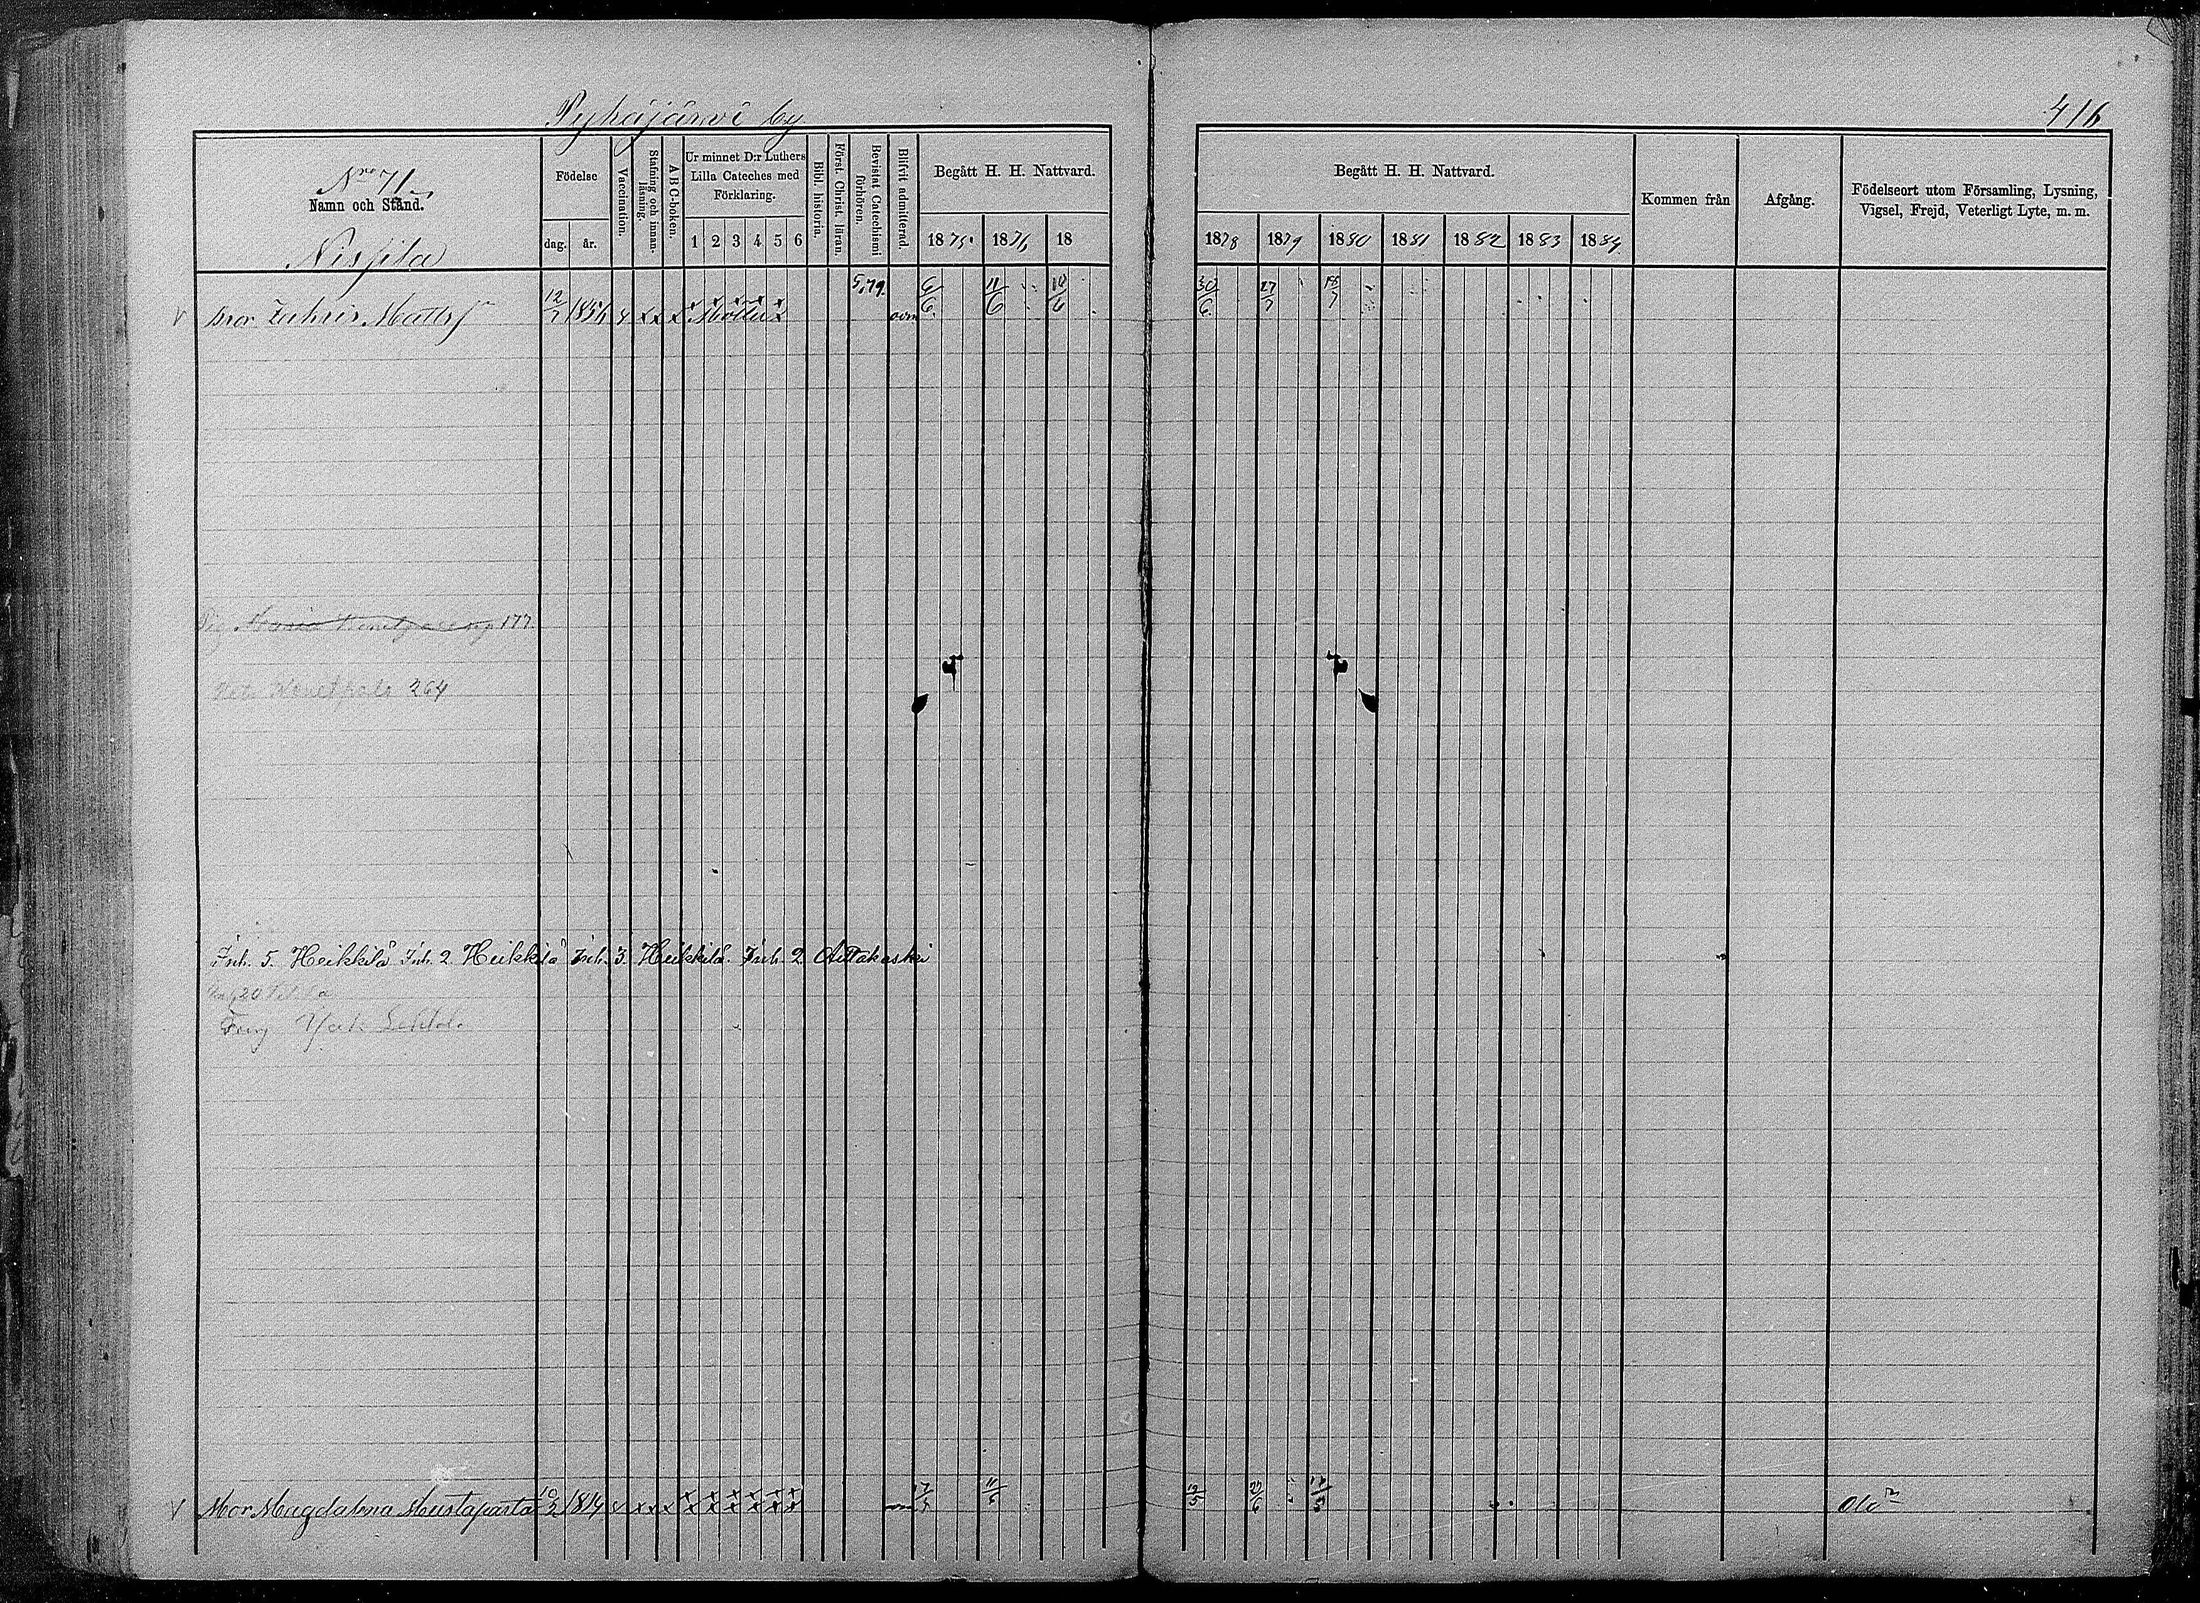 Pyhäjärvi by
416
Nro 71
Namn och Stånd.
Nissilä
Födelse
dag. år.
Vaccination.
Stafning och innan-läsning.
A B C-boken.
Ur minnet D:r Luthers Lilla Cateches med Förklaring.
1 2 3 4 5 6
Bibl. historia.
Först. Christ. läran.
Bevistat Catechismi förhören.
Blifvit admitterad
Begått H. H. Nattvard.
1875. 1876 18
Begått H. H. Nattvard.
1878 1879 1880 1881 1882 1883 1884.
Kommen från
Afgång.
Födelseort utom Församling, Lysning, Vigsel, Frejd, Veterligt Lyte, m. m.
Bror Zachris Matts 12/7 185 x x x x 5,79. 6/6 11/6 10/6 30/6 27/7 18/7
Maria 177
264
Inh. 5. Heikkilä Inh. 2 Heikkilä Inh. 3. Heikkilä. Inh. 2 Aittakoski
Mor Magdalena Mustaparta 1814 x x x x 11/6